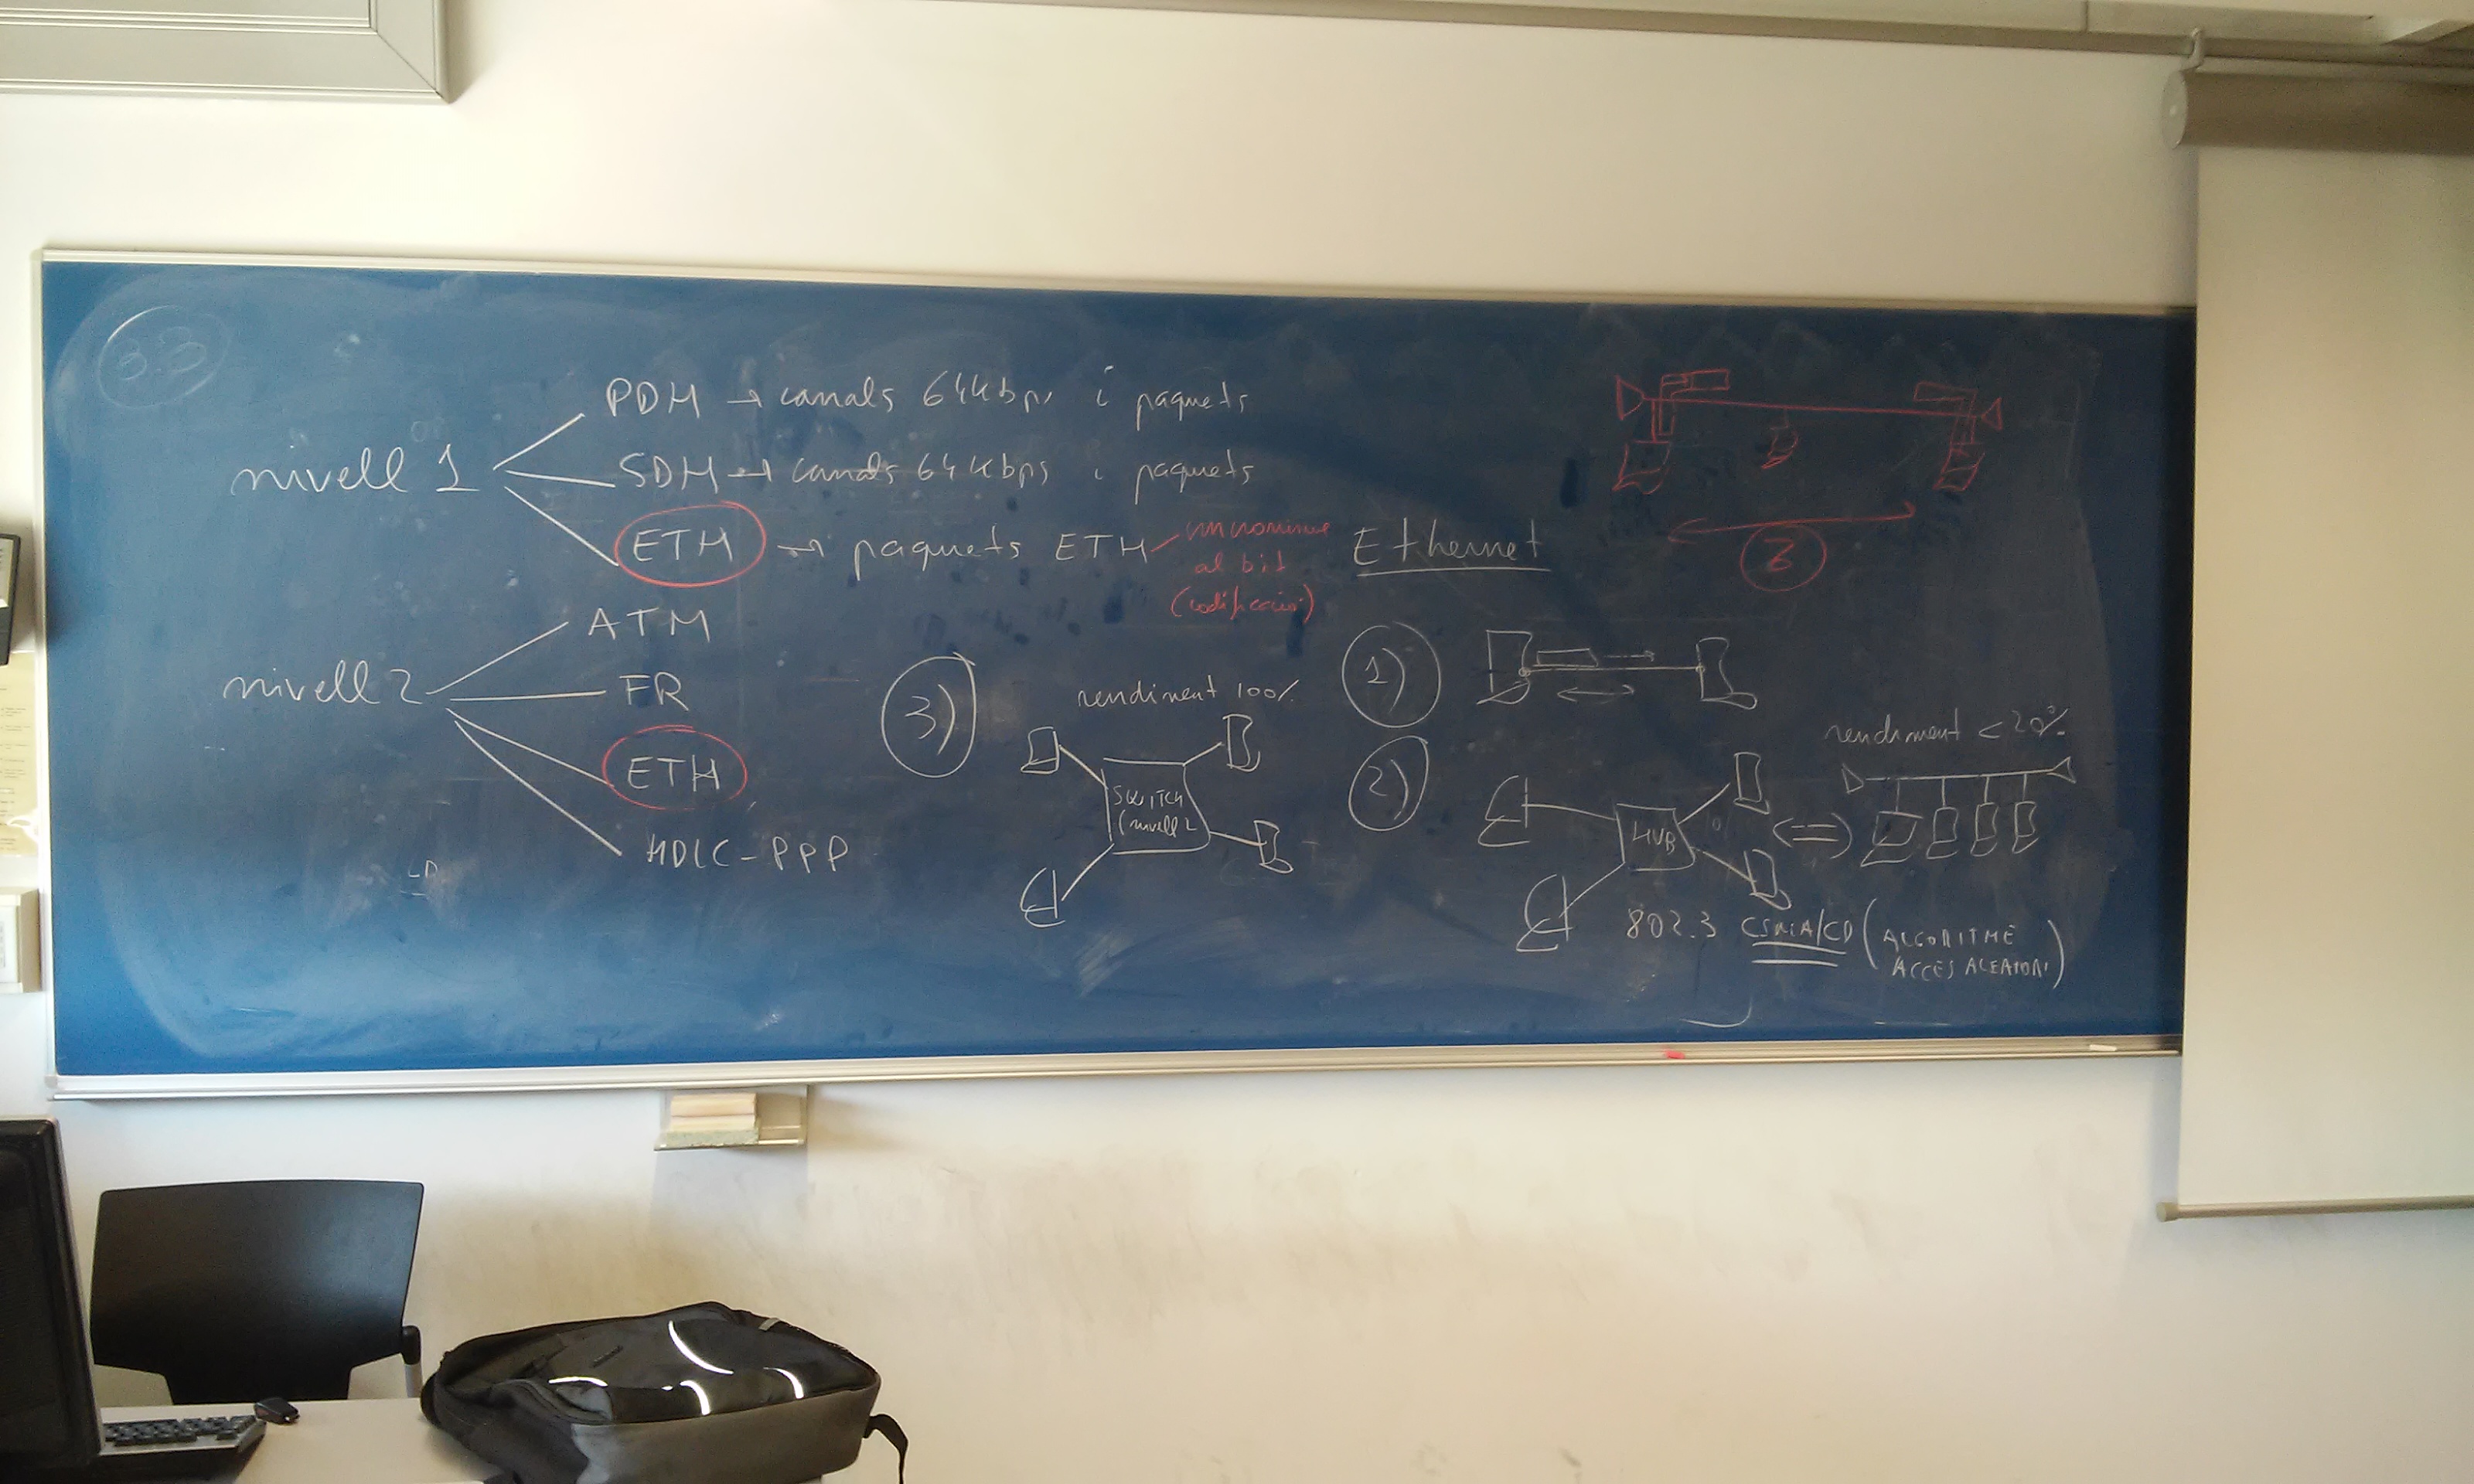 3.3
nivell 1
PDH → canals 64kbps i paquets
SDH → canals 64kbps i paquets
ETH → paquets ETH
al bit
(codificació)
nivell 2
ATM
FR
ETH
HDLC-PPP
3)
rendiment 100%
SWITCH
(nivell 2
Ethernet
1)
2)
HUB
<=>
rendiment < 20%
802.3 CSMA/CD (ALGORITME
ACCÉS ALEATORI)